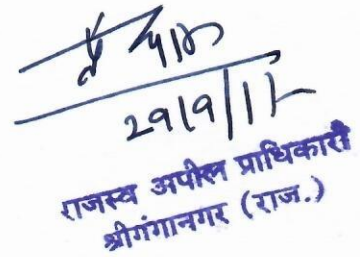 29/9/15
राजस्व अपील प्राधिकारी
श्रीगंगानगर (राज.)